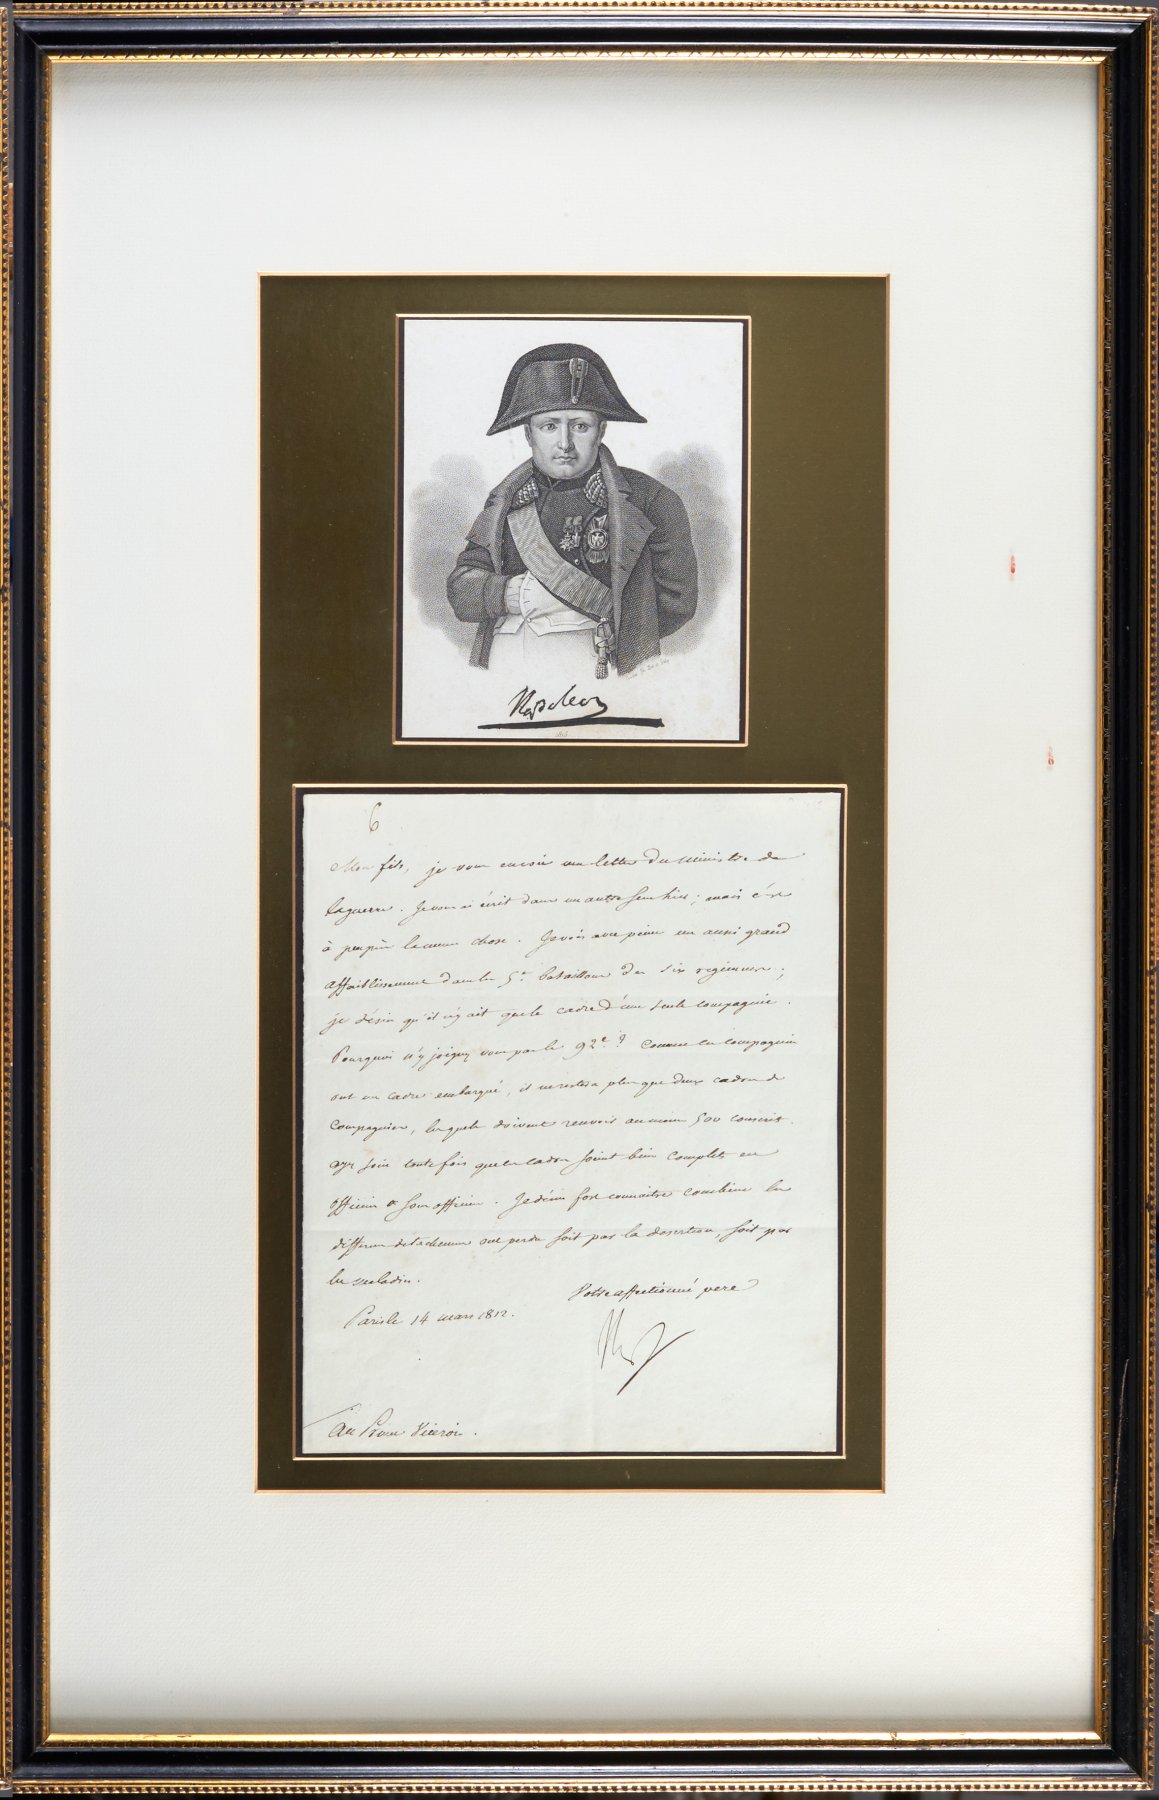 Napoleon
6
Mon fils, je vous envoie une lettre du Ministre de
la guerre. Je vous ai écrit dans un autre sens hier; mais c'est
à peu près la même chose. Je vois avec peine un aussi grand
affaiblissement dans les 5es bataillons des six régimens;
je désire qu'il n'y ait que le cadre d'une seule compagnie.
Pourquoi n'y joignez vous pas le 92e? Comme les compagnies
ont un cadre embarqué, il ne restera plus que deux cadres de
Compagnies, lesquels doivent recevoir au moins 500 conscrits.
ayez soin toutefois que les cadres soient bien complets en
officiers et sous officiers. Je désire fort connaître combien les
différens détachemens ont perdu soit par la desertion, soit par
les maladies.
Votre affectionné père
Paris le 14 mars 1812.
Nap
Au Prince Viceroi.